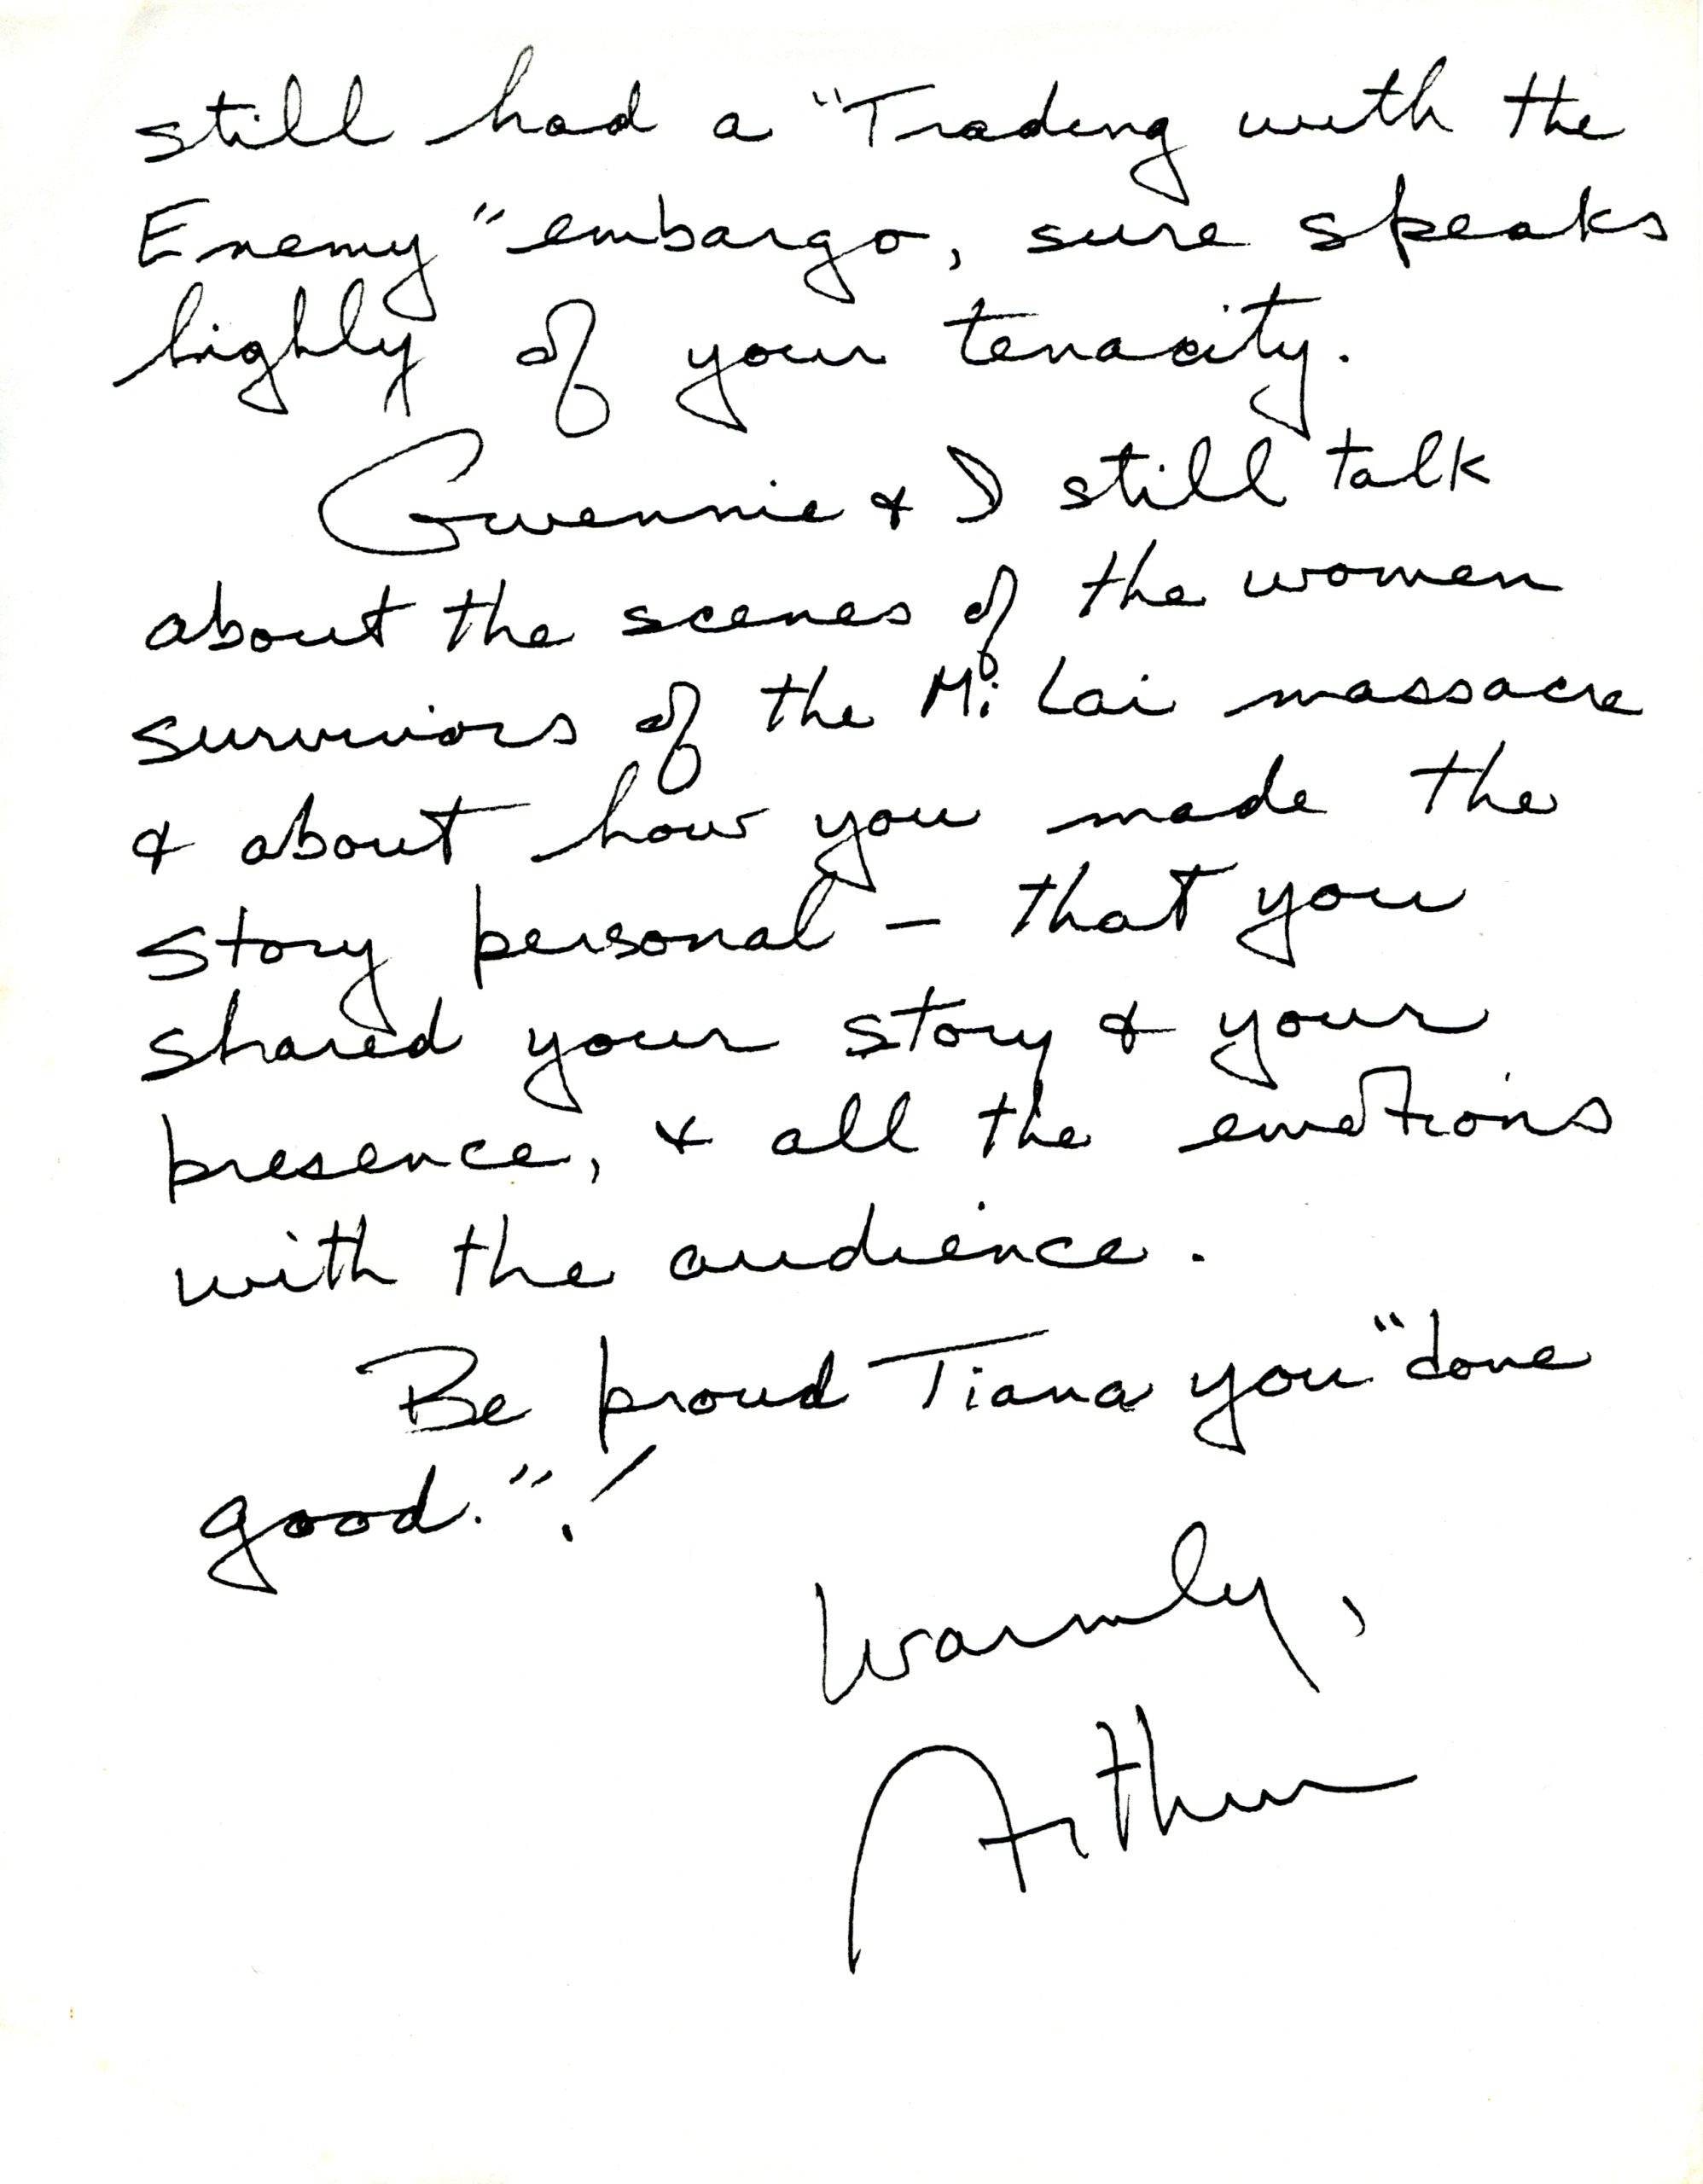 still had a "Trading with the
Enemy" embargo, sure speaks
highly of your tenacity.
Gwennie & I still talk
about the scenes of the women
survivors of the Mi Lai massacre
& about how you made the
story personal - that you
shared your story & your
presence, & all the emotions
with the audience.
Be proud Tiana you "done
good."!
Warmly,
Arthur